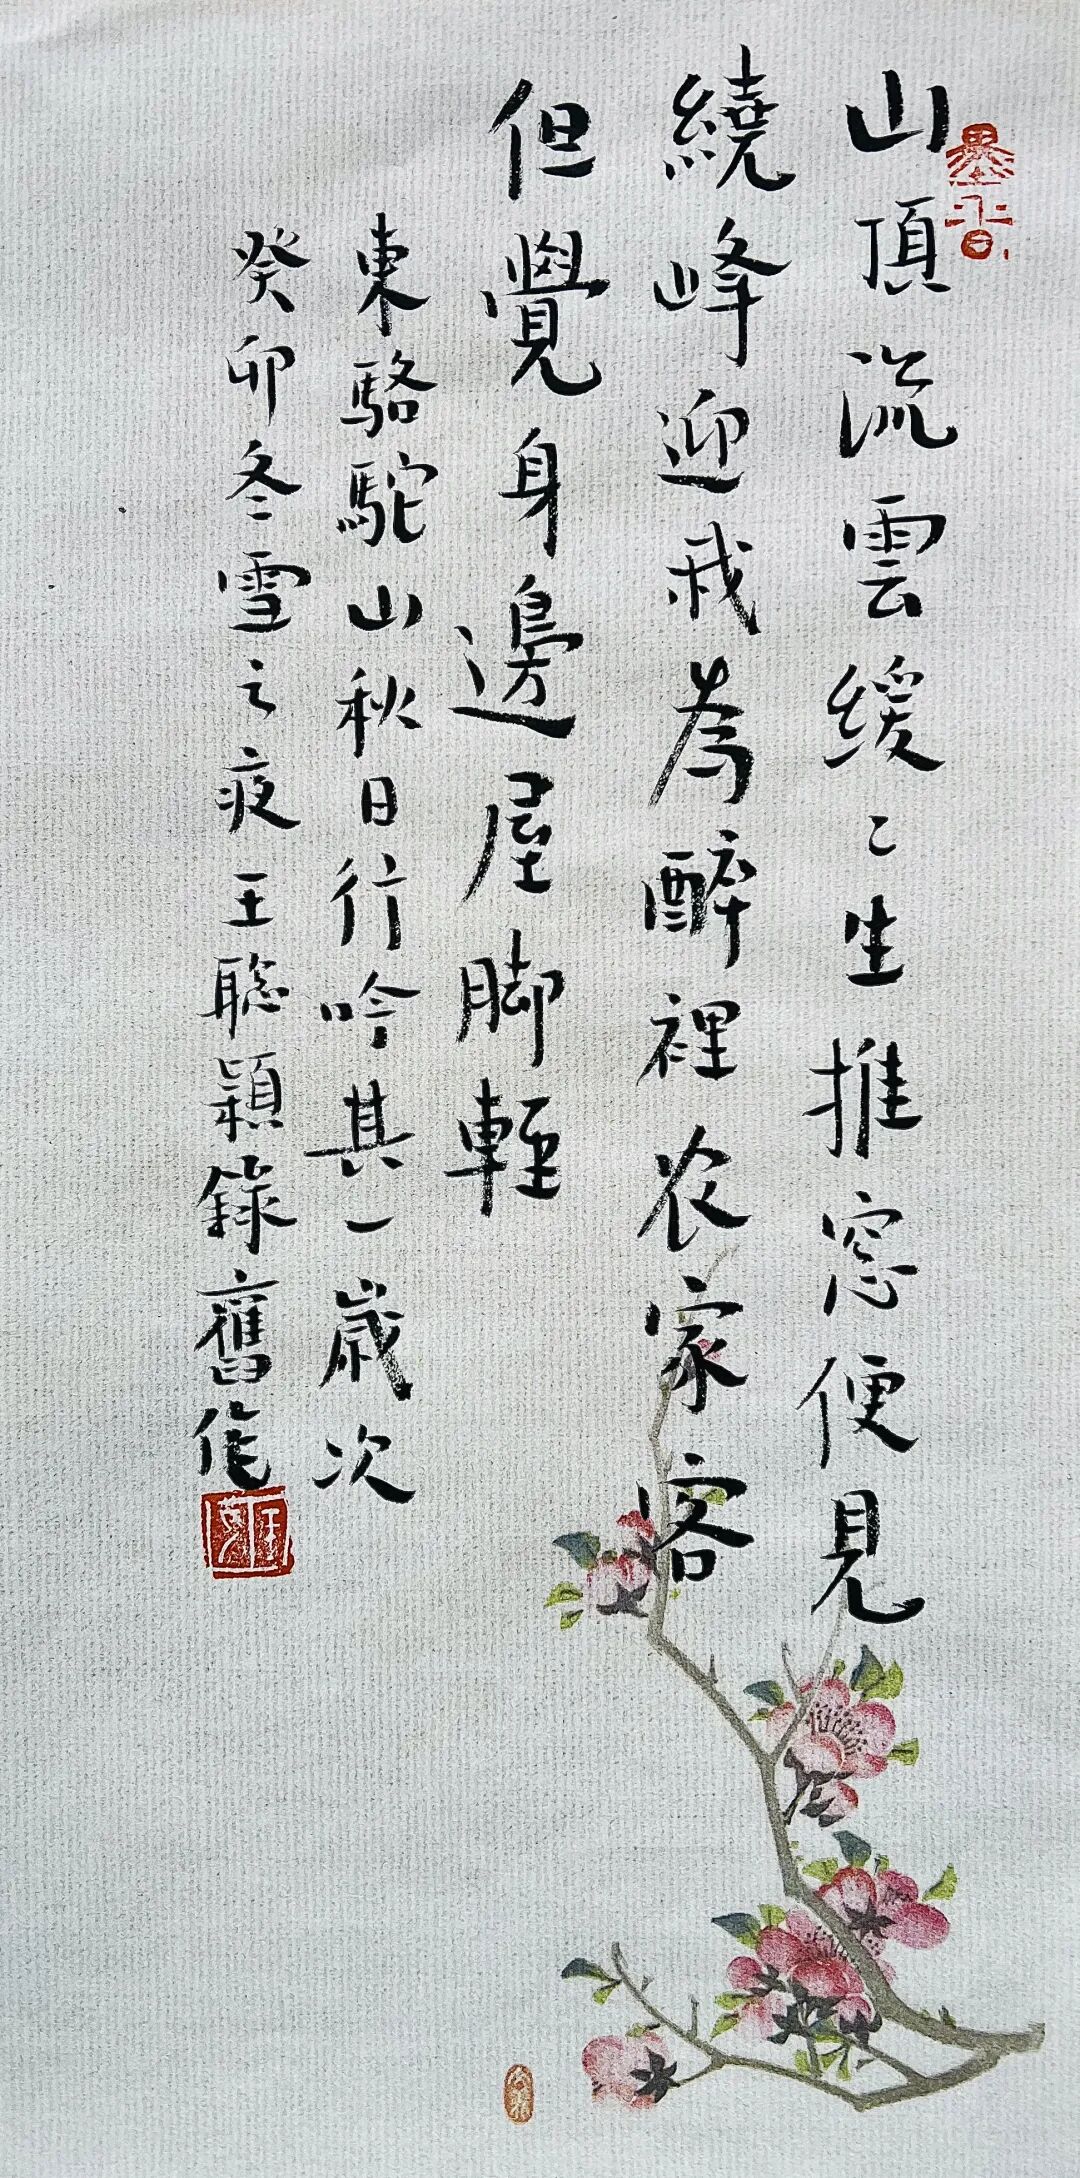 山頂流雲緩〻生推窓便見
繞峰迎我為醉裡农家客
但覺身邊屋脚輕
東駱駝山秋日行吟其一歲次
癸卯冬雪之夜王聰穎錄舊作